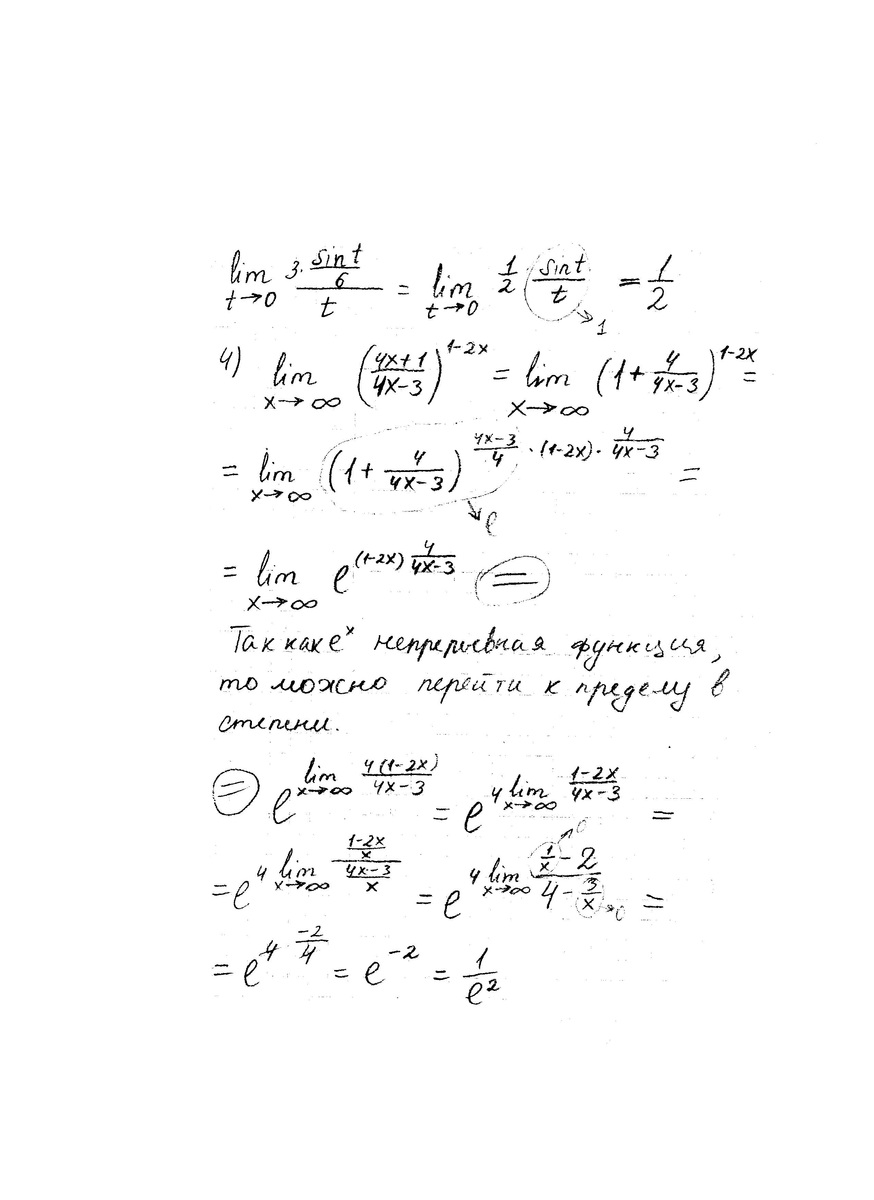 lim_{t→0} (3·(sin t/6))/t = lim_{t→0} 1/2 (sin t)/t = 1/2
→1
4) lim_{x→∞} ((4x+1)/(4x-3))^{1-2x} = lim_{x→∞} (1+4/(4x-3))^{1-2x} =
= lim_{x→∞} (1+4/(4x-3))^{(4x-3)/4·(1-2x)·4/(4x-3)} =
→e
= lim_{x→∞} e^{(1-2x) 4/(4x-3)} =
Так как e^x непрерывная функция,
то можно перейти к пределу в
степени.
= e^{lim_{x→∞} 4(1-2x)/(4x-3)} = e^{4 lim_{x→∞} (1-2x)/(4x-3)} =
= e^{4 lim_{x→∞} ((1-2x)/x)/((4x-3)/x)} = e^{4 lim_{x→∞} (1/x - 2)/(4 - 3/x)} =
→0 →0
= e^{4 (-2)/4} = e^{-2} = 1/e^2